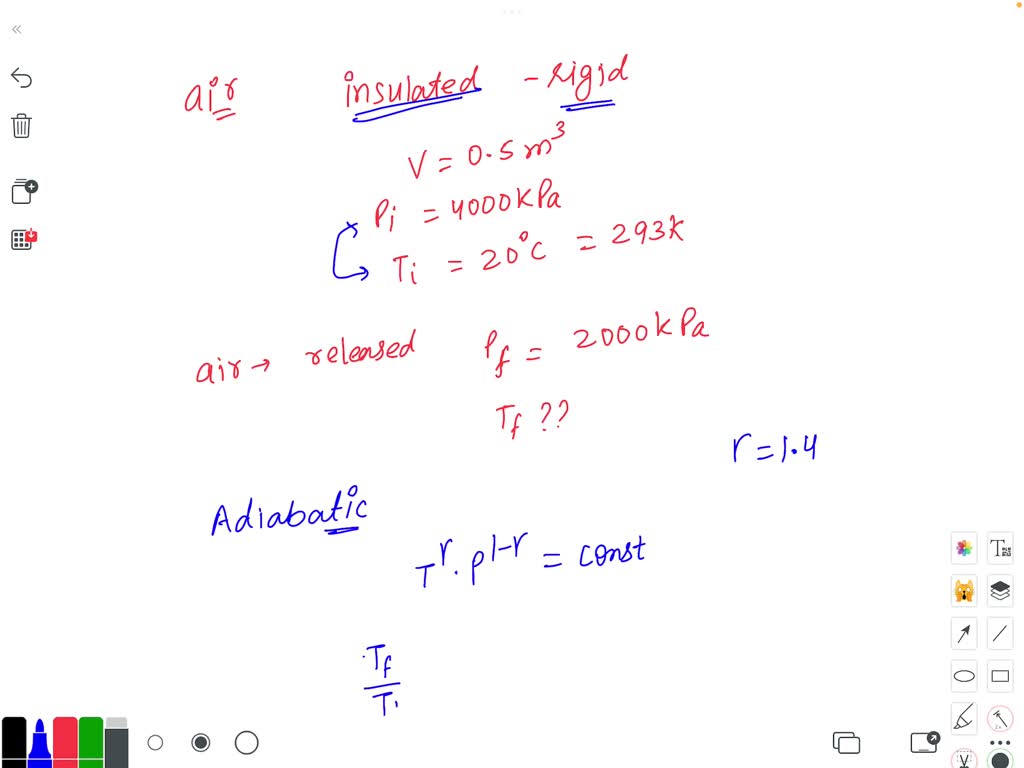 air insulated - rigid
V = 0.5 m³
Pi = 4000 kPa
Ti = 20°C = 293k
air → released Pf = 2000 kPa
Tf ??
r = 1.4
Adiabatic
T^r . P^1-r = const
Tf
Ti